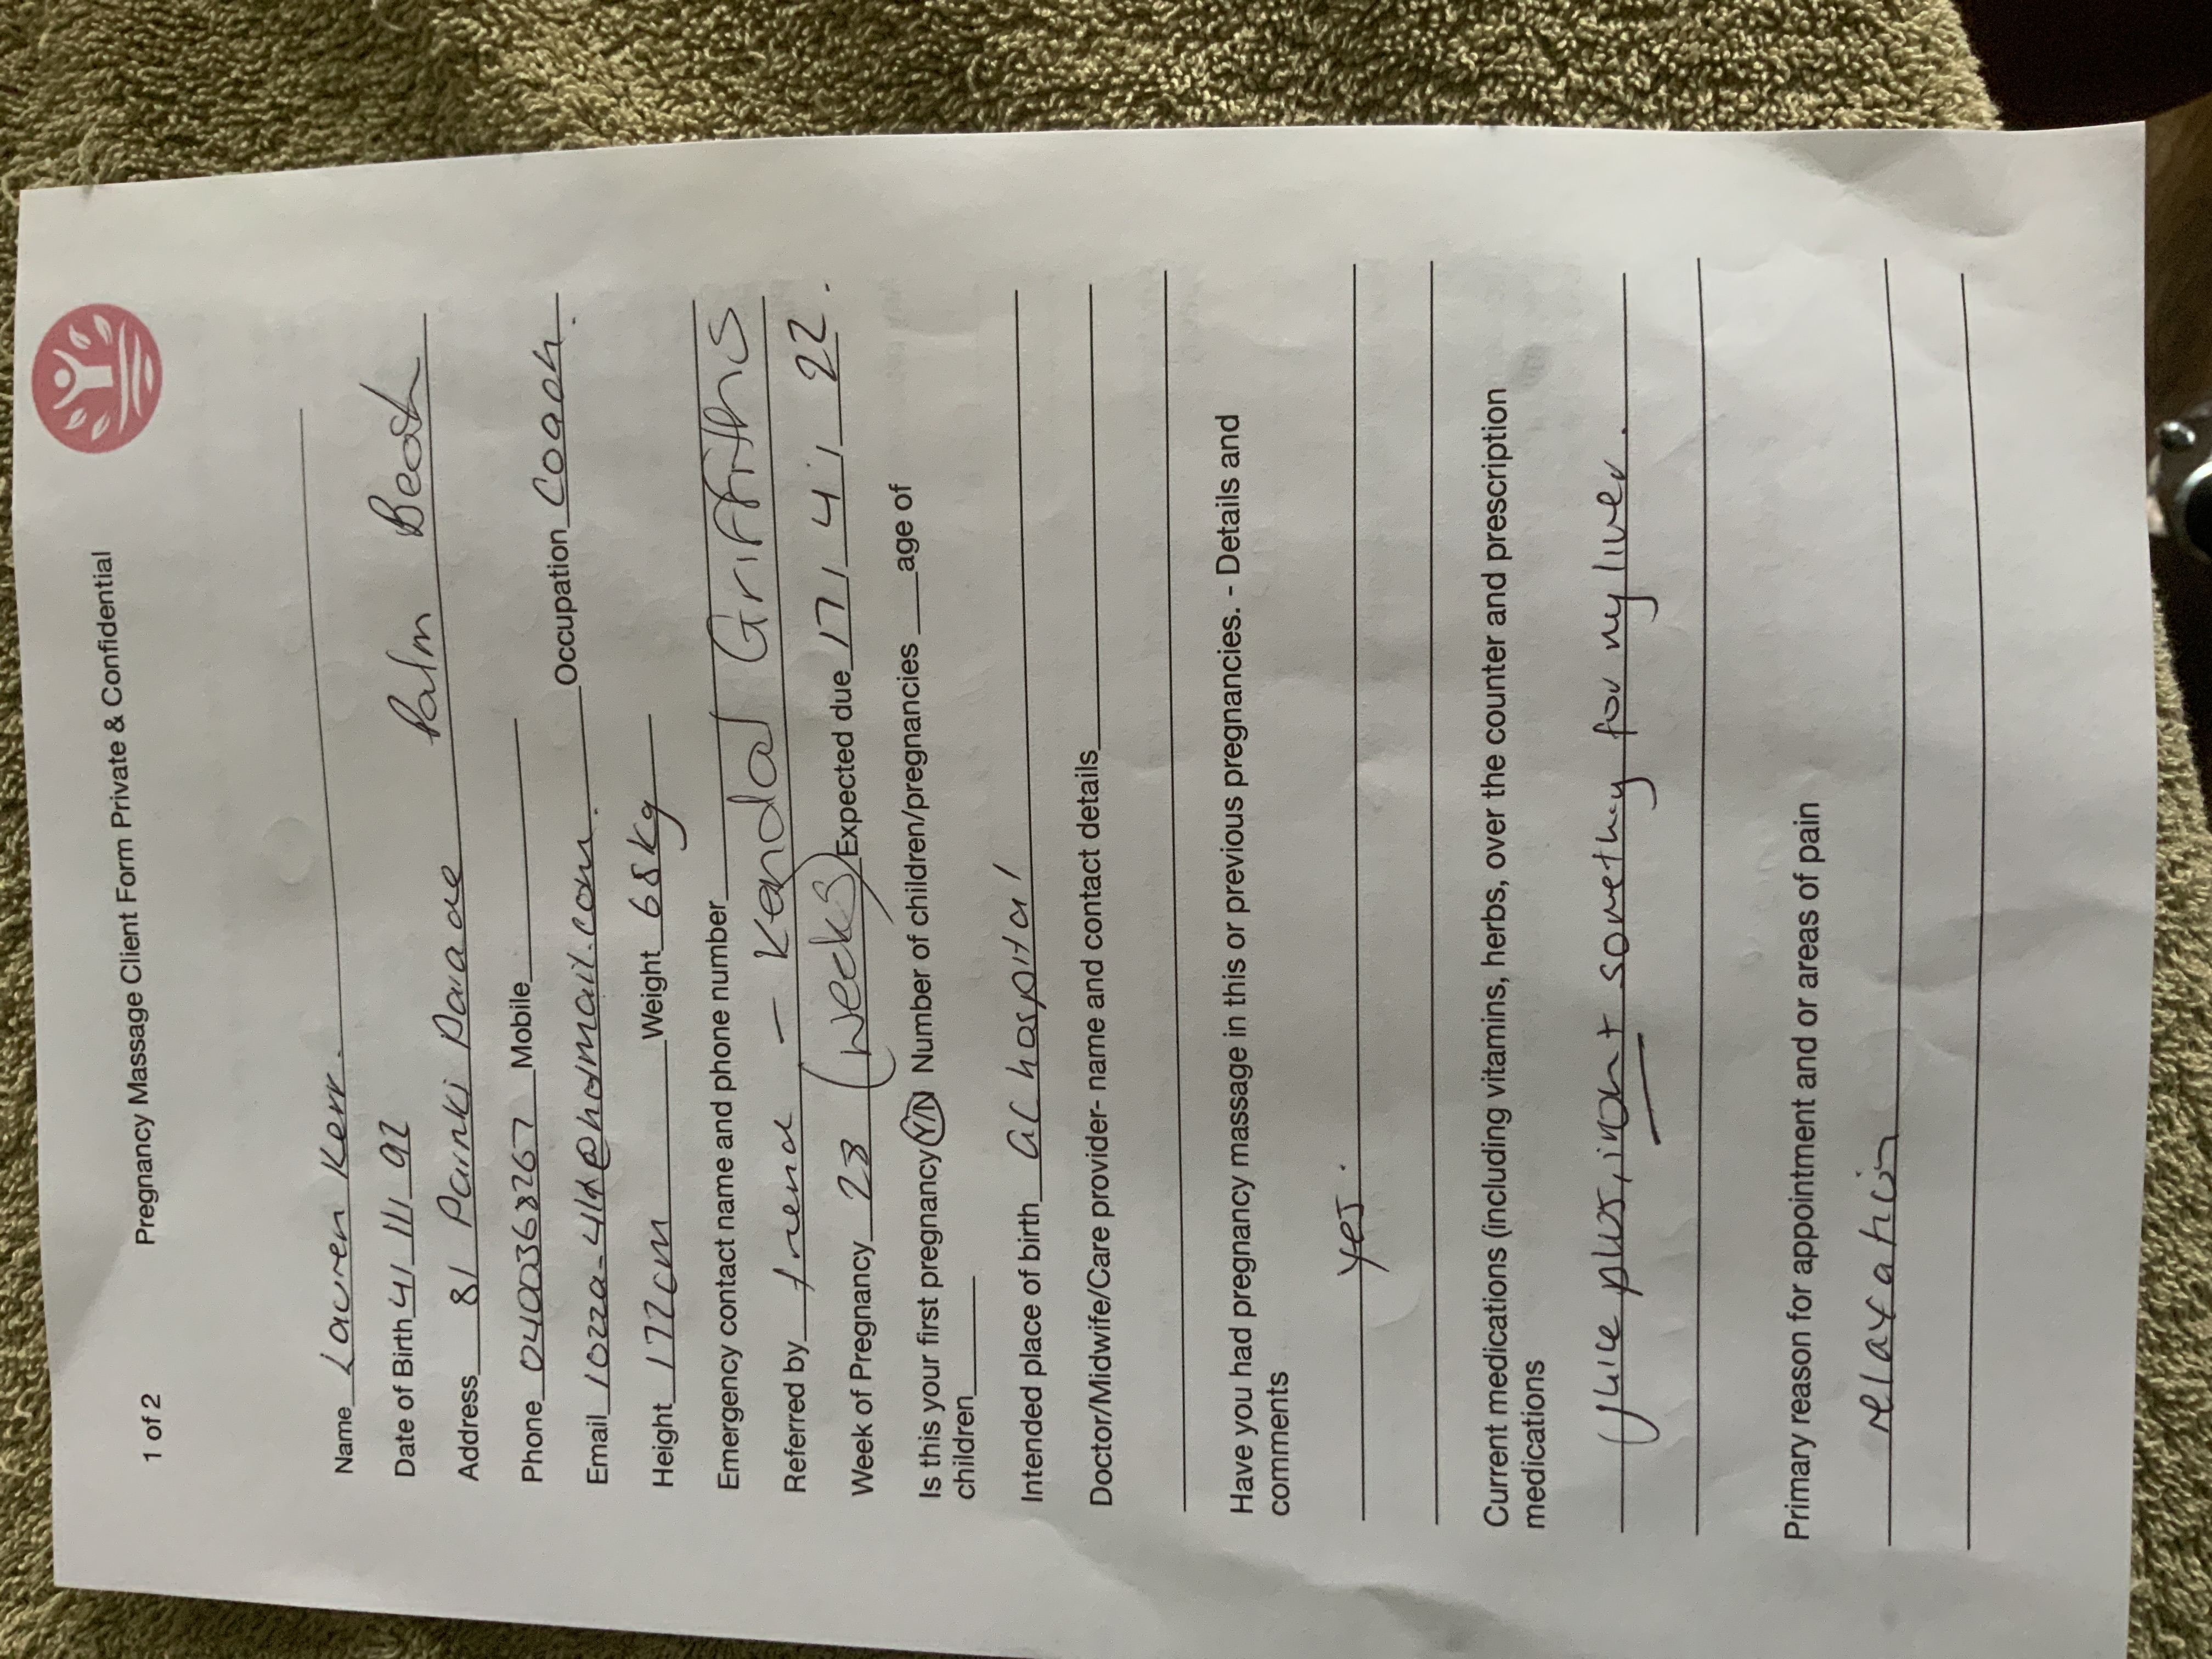 1 of 2 Pregnancy Massage Client Form Private & Confidential
Name Lauren Kerr.
Date of Birth 4/ 11/ 92 Palm Beach
Address 81 Parade
Phone 0400368267 Mobile
Email @hotmail.com. Occupation Coach.
Height 172cm Weight 68kg
Emergency contact name and phone number
Referred by friend - Kendal Griffiths
Week of Pregnancy 23 (weeks) Expected due 17/ 4/ 22.
Is this your first pregnancy Y/N Number of children/pregnancies age of
children
Intended place of birth GC hospital
Doctor/Midwife/Care provider- name and contact details
Have you had pregnancy massage in this or previous pregnancies. - Details and
comments
yes.
Current medications (including vitamins, herbs, over the counter and prescription
medications
Juice plus, for my liver.
Primary reason for appointment and or areas of pain
relaxation